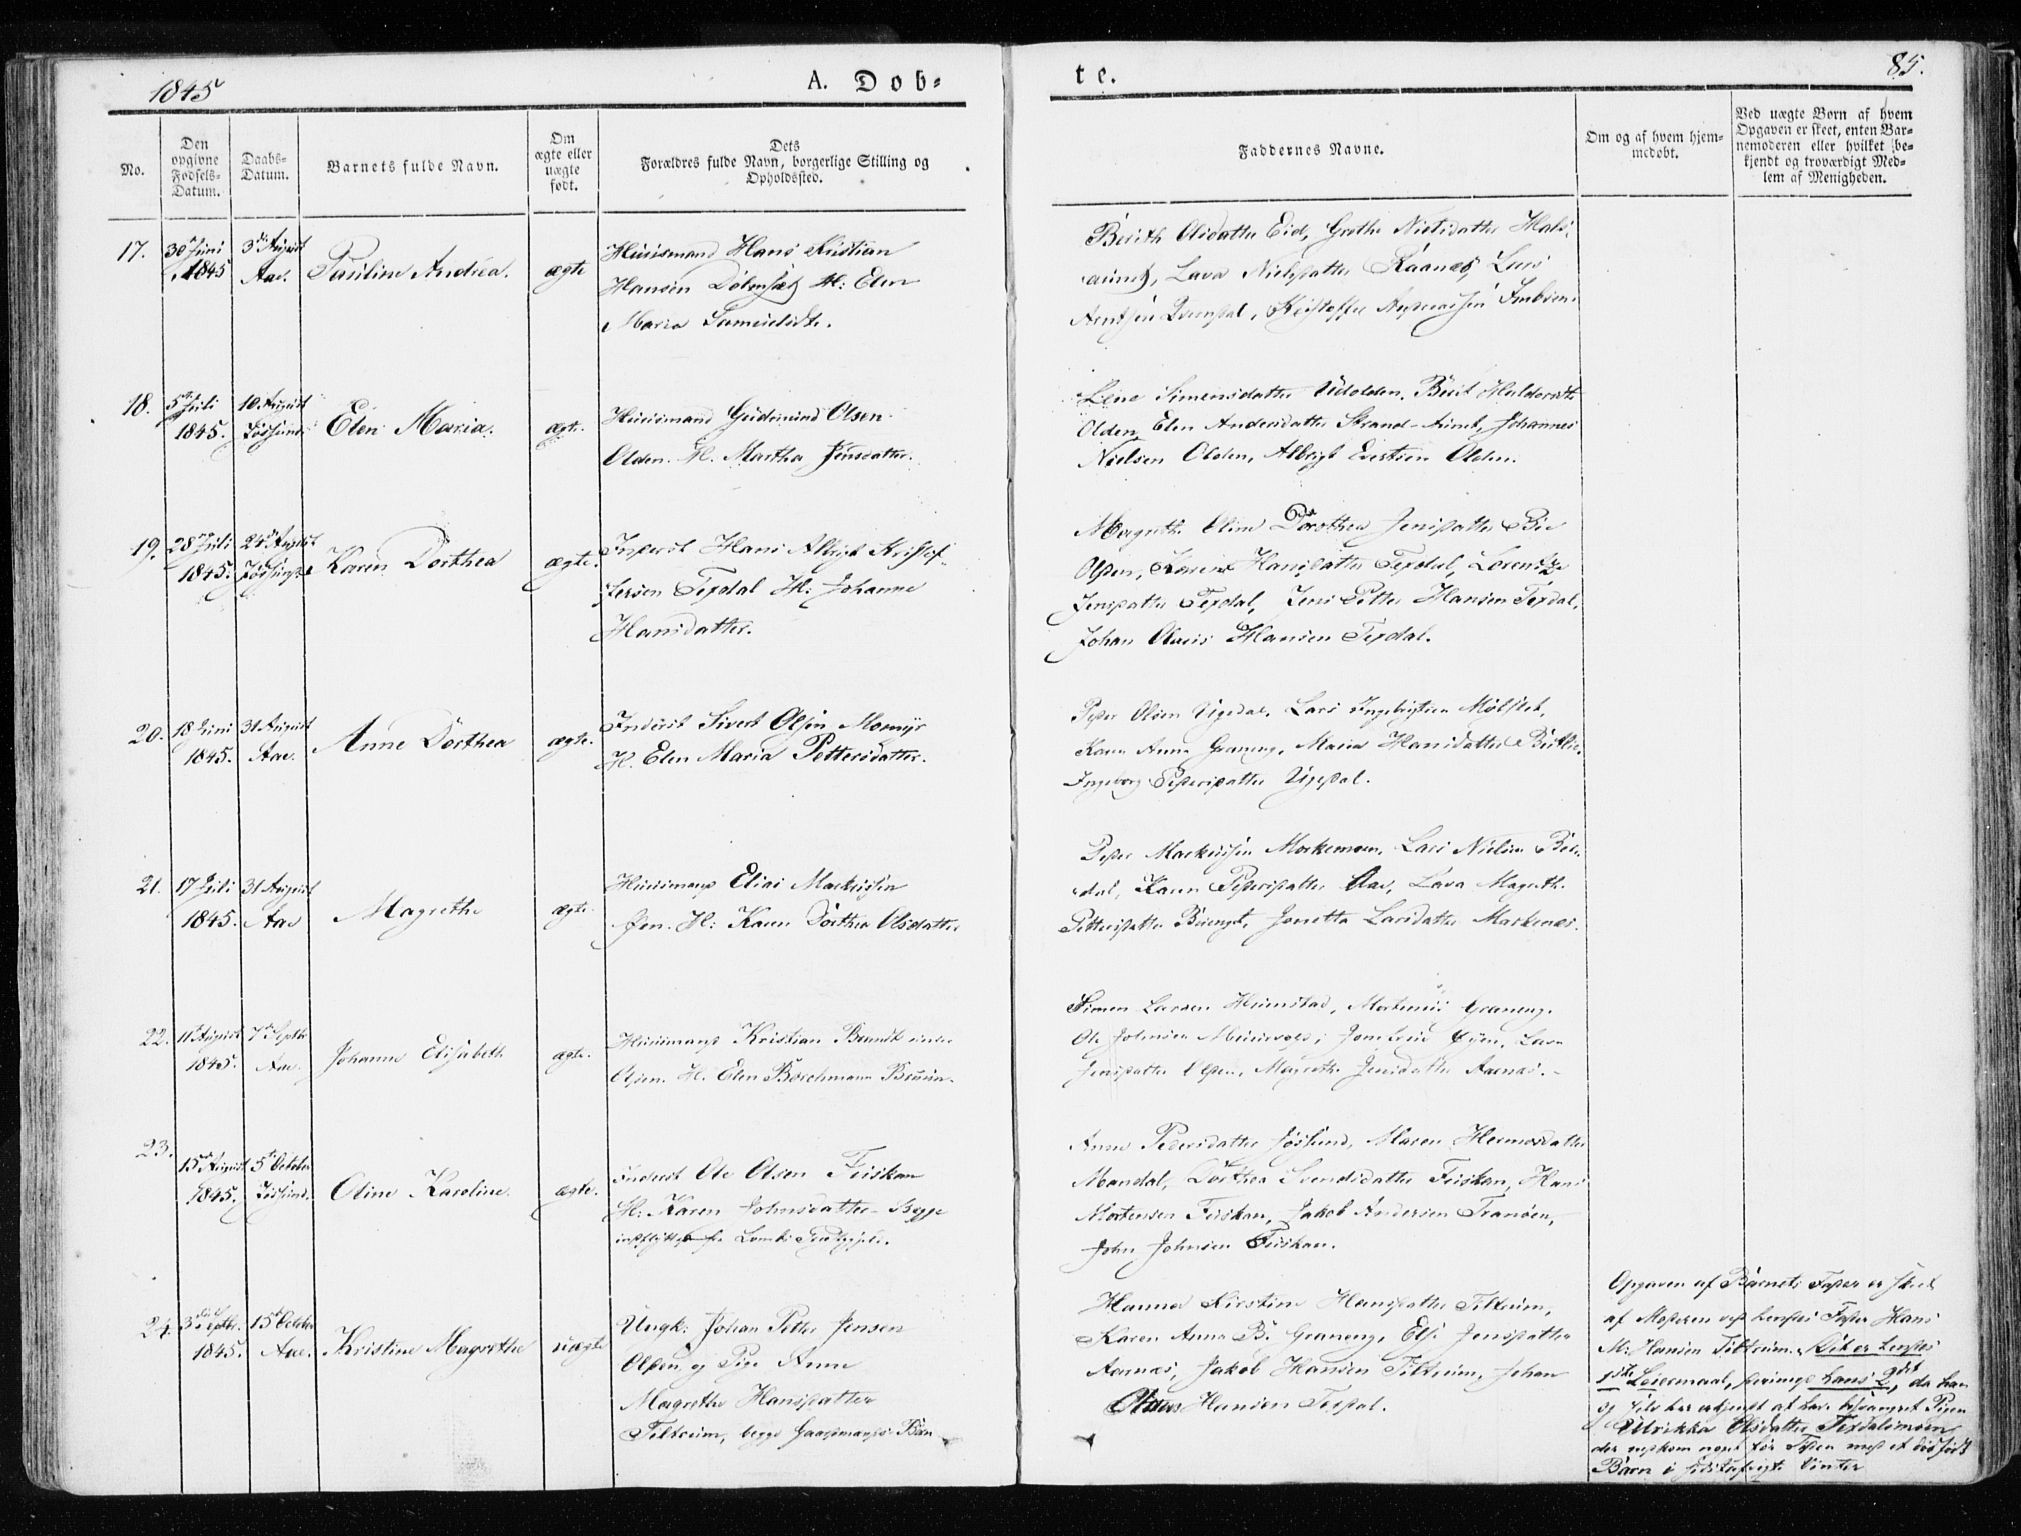 1845
A. Dob-
te.
85.
No.
Den
opgivne
Fødsels-
Datum.
Daabs-
Datum.
Barnets fulde Navn.
Om
ægte eller
uægte
født.
Dets
Forældres fulde Navn, borgerlige Stilling og
Opholdssted.
Faddernes Navne.
Om og af hvem hjem-
medøbt.
Ved uægte Børn af hvem
Opgaven er skeet, enten Bar-
nemoderen eller hvilket be-
kjendt og troværdigt Med-
lem af Menigheden.
17.
30 Juni
1845
3 August
Aae.
Pauline Andrea.
ægte
Huusmand Hans Kristian
Hansen H: Elen
Maria Samuelsdtr.
Berith Olsdatter Eid, Grethe Nielsdatter Hals-
aunet, Lava Nielsdatter Raanes, Lars
Arntsen, Kristoffer
18.
5 Juli
1845.
10 August
Jøssund
Elen Maria.
ægte.
Huusmand Gudmund Olsen
Olden. H. Martha Jensdatter.
Lene Simensdatter Udolden, Berit Haldorsdtr
Olden, Elen Andersdatter Strand-Aunet, Johannes
Nielsen Olden, Albrigt Evertsen Olden.
19.
28 Juli
1845.
24 August
Jøssund
Karen Dorthea
ægte.
Inderst Hans Albrigt Kristof-
fersen Texdal H: Johanne
Hansdatter.
Magrethe Oline Dorothea Jensdatter Bie
Olsen, Karen Hansdatter Texdal, Lorentze
Jensdatter Texdal, Jens Petter Hansen Texdal,
Johan Olaus Hansen Texdal.
20.
18 Juni
1845.
31 August
Aae.
Anne Dorthea
ægte.
Inderst Sivert Olsen Momyr
H. Elen Maria Pettersdatter.
Peder Olsen Ugedal, Lars Ingebrigtsen Mølslet,
Karen Anna Graneng, Maria Hansdatter
Ingeborg Pedersdatter Ugedal.
21.
17 Juli
1845.
31 August
Aae
Magrethe
ægte.
Huusmand Elias Markussen
Øen. H: Karen Dorthea Olsdatter
Peder Markussen, Lars Nielsen
dal, Karen Pedersdatter Aae, Lava Magrethe
Pettersdatter, Jonetta Larsdatter
22.
11 August
1845.
7 Septbr
Aae.
Johanna Elisabeth
ægte.
Huusmand Kristian Brandt under
Olsen. H. Elen Borchmann Bruun.
Simen Larsen Hunstad, Martinus Graneng,
Ole Johnsen, Lava
Jensdatter Olsen, Magrethe Jensdatter Aarnes.
23.
15 August
1845.
5 October
Jøssund.
Oline Karoline.
ægte.
Inderst Ole Olsen Fiskan
H: Karen Johnsdatter. Begge
indflyttede fra Præstegjeld.
Anne Pedersdatter Jøssund, Maren
Mandal, Dorthea Svendsdatter Fuskan, Hans
Mortensen Fuskan, Jakob Andersen Tranøen,
John Johnsen Fuskan.
24.
3 Septbr.
1845.
15 October
Aae.
Kristine Magrethe
uægte
Ungk: Johan Petter Jensen
Olsen, og Pige Anne
Magrethe Hansdatter
Teltrum, begge Gaardmands-Børn
Hanna Kirstine Hansdatter Teltrum,
Karen Anna B. Graneng, Else Jensdatter
Aarnes, Jakob Hansen Teltrum, Johan
Olaus Hansen Texdal.
Opgaven af Barnets Fader er skeet
af Moderen ved hendes Fader Hans
M: Hansen Teltrum. Det er hendes
1ste Leiermaal, hans 2det, da han
har erkjendt at have besvangret Pigen
Ulrikka Olsdatter Texdalsmoen
der nedkom noget før Tiden med et dødfødt
Barn i sidstafvigte Vinter